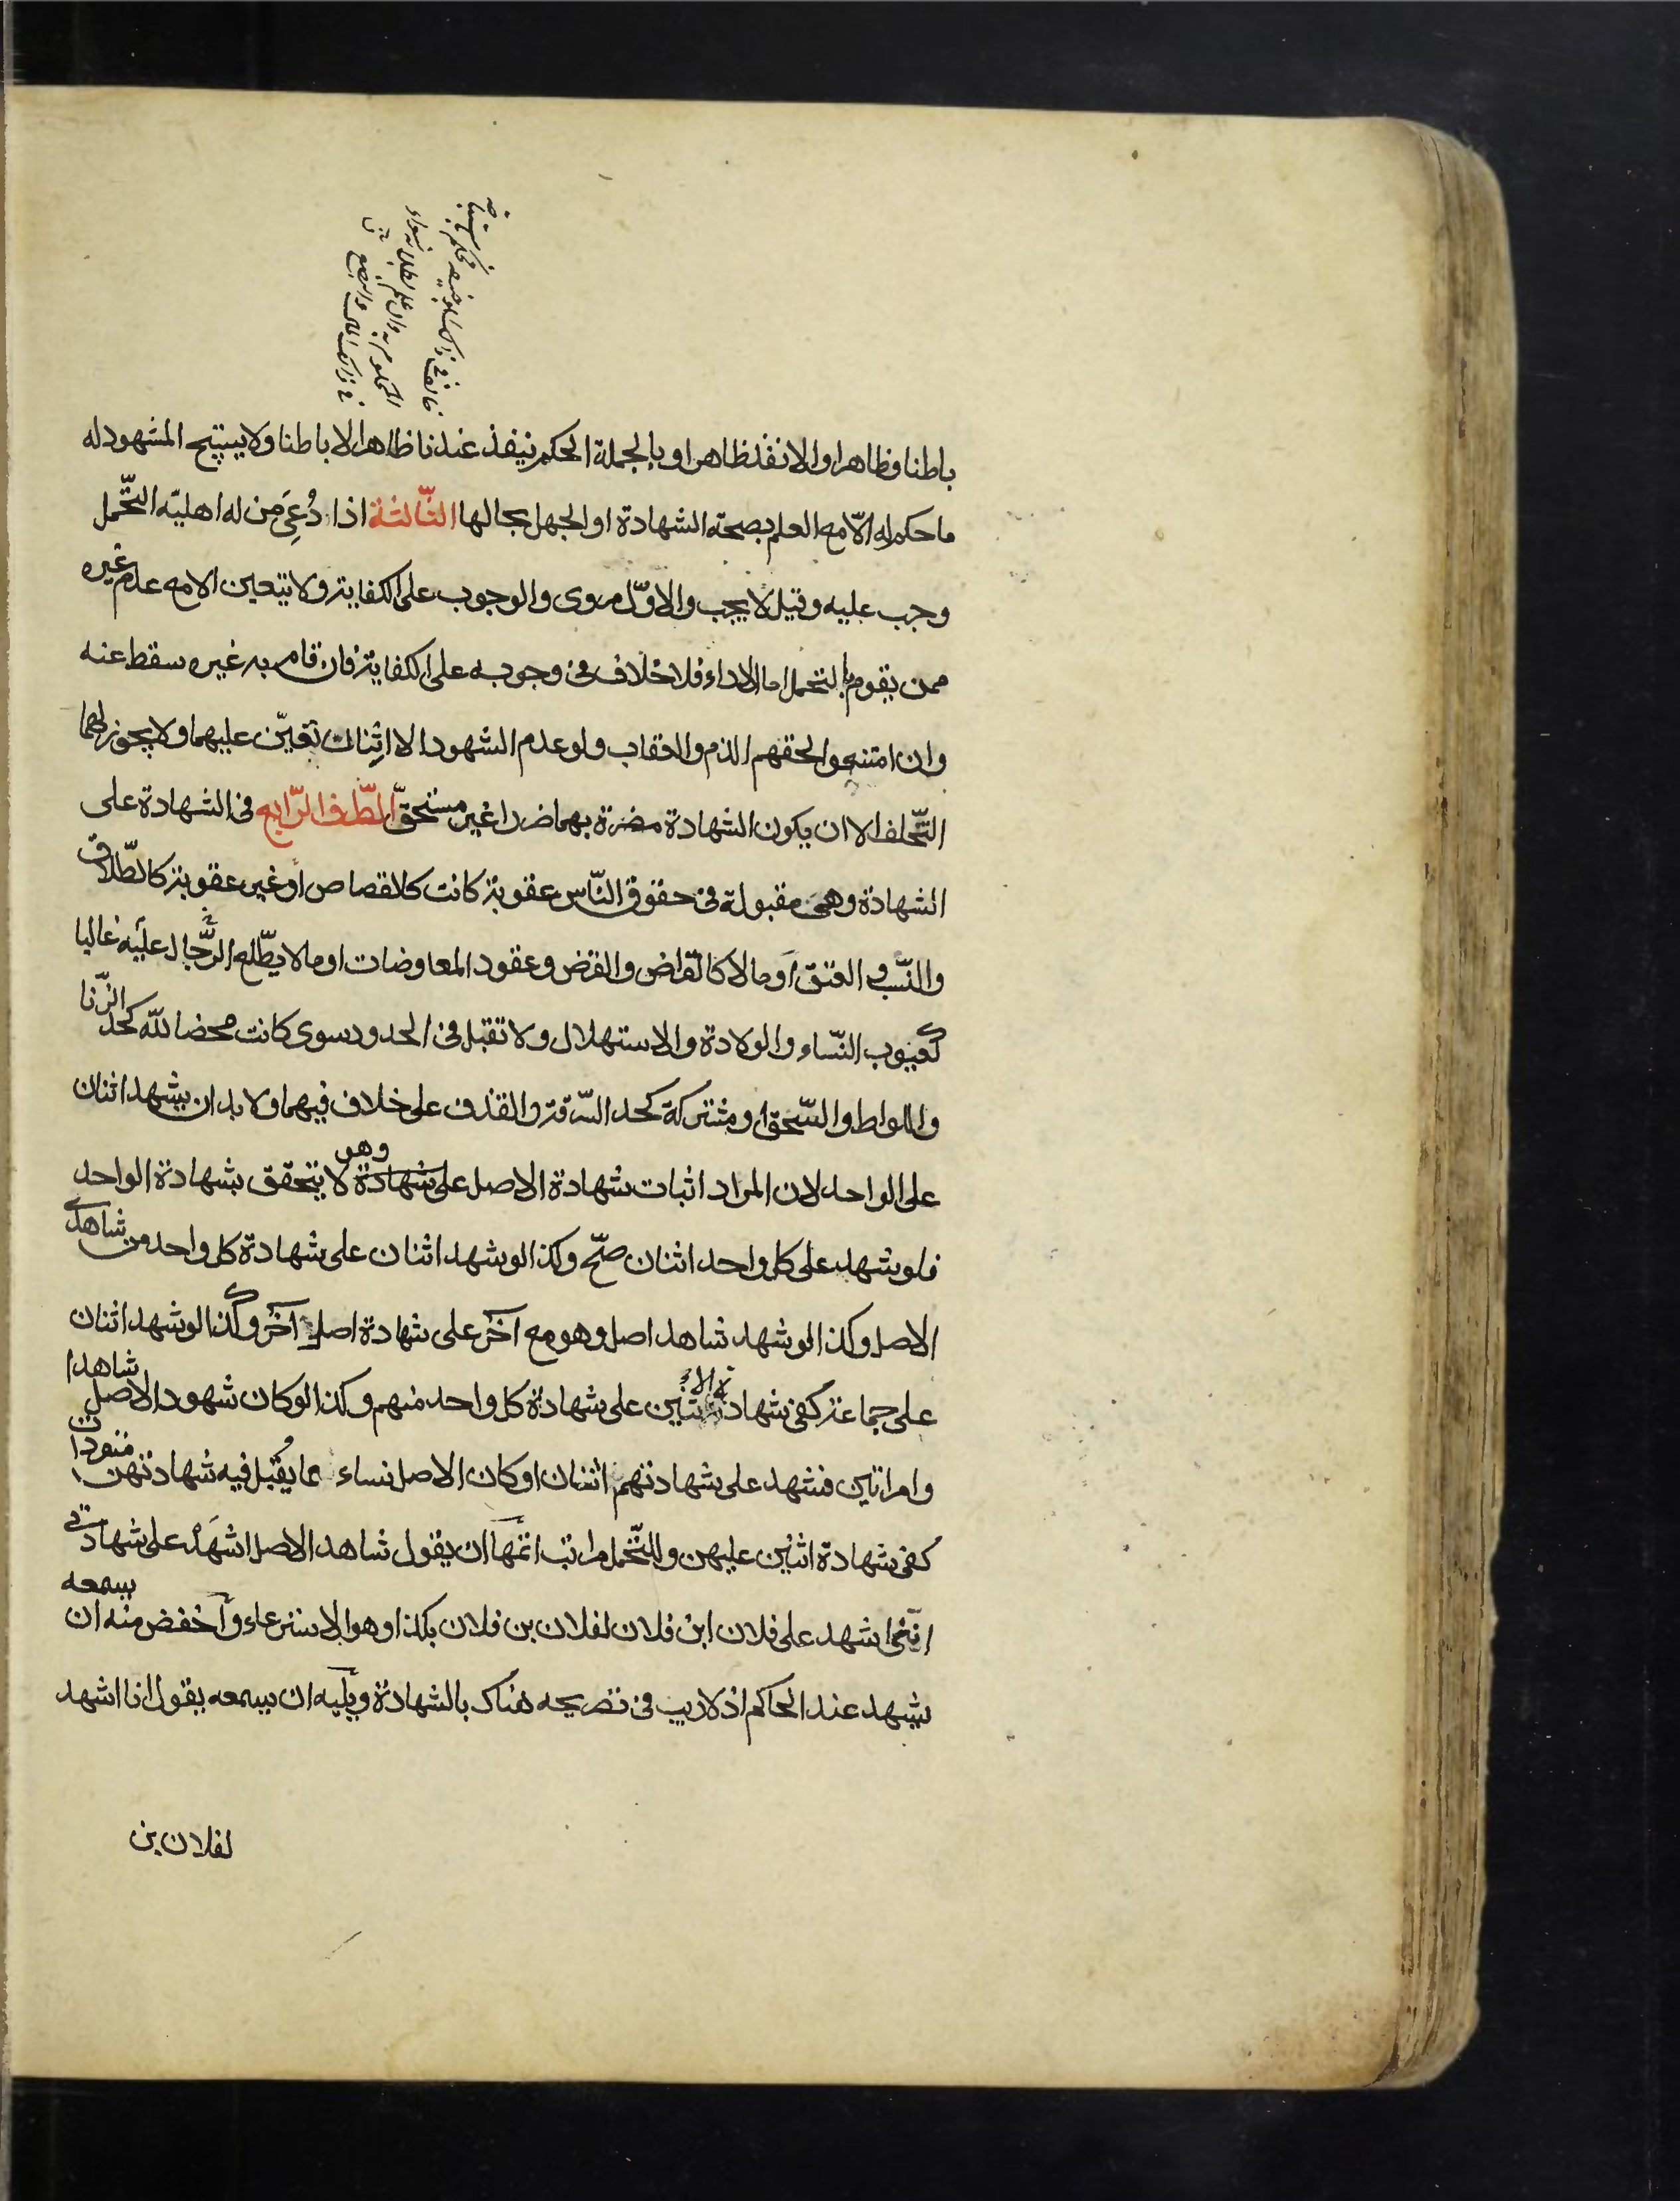 باطنا وظاهرا والا نفذ ظاهرا وبالجملة الحكم ينفذ عندنا ظاهرا لا باطنا ولا يستبيح المشهود له
ما حكم له الّا مع العلم بصحة الشهادة او الجهل بحالها الثّالثة اذا دُعِيَ من له اهليّه التّحمل
وجب عليه وقيل لا يجب والاوّل مروى والوجوب على الكفاية ولا يتعين الا مع عدم غيره
ممن يقوم بالتحمل اما الاداء فلا خلاف فى وجوبه على الكفاية فان قام به غيره سقط عنه
وان امتنعوا لحقهم الذم والعقاب ولو عدم الشهود الا اثنان تعيّن عليهما ولا يجوز لهما
التّخلف الا ان يكون الشهادة مضرة بهما ضررا غير مستحقّ الطّرف الرّابع فى الشهادة على
الشهادة وهى مقبولة فى حقوق النّاس عقوبة كانت كالقصاص او غير عقوبة كالطّلاق
والنّسب والعتق او مالا كالقراض والقرض وعقود المعاوضات او ما لا يطّلع الرّجال عليه غالبا
كعيوب النّساء والولادة والاستهلال ولا تقبل فى الحدود سوى كانت محضا للّه كحد الزّنا
واللواط والسّحق او مشتركة كحد السّرقة والقذف على خلاف فيهما ولا بد ان يشهد اثنان
على الواحد لان المراد اثبات شهادة الاصل على شهادة وهو لا يتحقق بشهادة الواحد
فلو شهد على كل واحد اثنان صحّ وكذا لو شهد اثنان على شهادة كل واحد من شاهدى
الاصل وكذا لو شهد شاهد اصل وهو مع آخر على شهادة اصل آخر وكذا لو شهد اثنان
على جماعة كفى شهادة الاثنين على شهادة كل واحد منهم وكذا لو كان شهود الاصل شاهدا
وامراتين فشهد على شهادتهم اثنان او كان الاصل نساء مما يُقبل فيه شهادتهن منفردات
كفى شهادة اثنين عليهن وللتّحمل مراتب اتمّها ان يقول شاهد الاصل اشهَد على شهادتى
انّنى اشهد على فلان ابن فلان لفلان بن فلان بكذا وهو الاسترعاء وأخفض منه ان يسمعه
يشهد عند الحاكم اذ لا ريب فى تصريحه هناك بالشهادة ويليه ان يسمعه يقول انا اشهد
لفلان بن